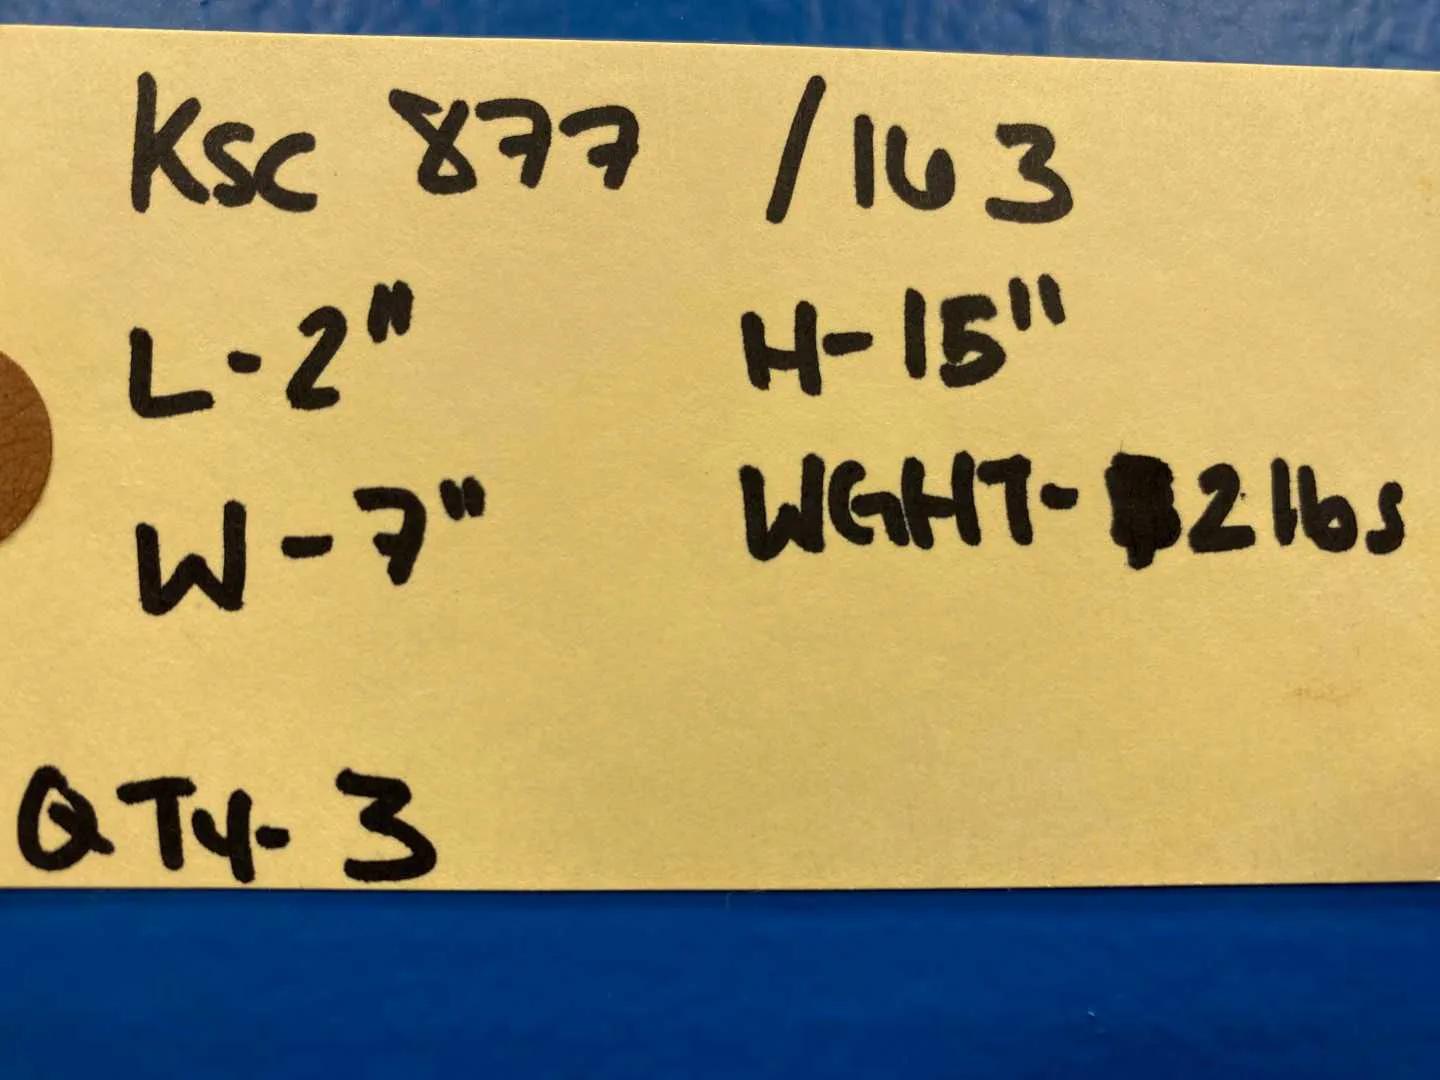 Ksc 877 /163
L-2" H-15"
W-7" WGHT-2lbs
QTy-3